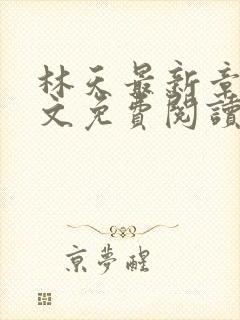 林天最新章
文免費閱讀
京夢醒